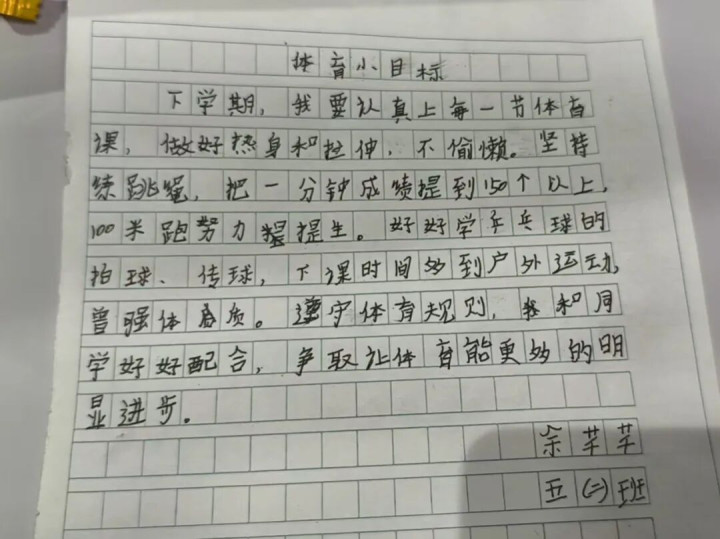 体育小目标
下学期，我要认真上每一节体育
课，做好热身和拉伸，不偷懒。坚持
练跳绳，把一分钟成绩提到150个以上，
100米跑努力提生。好好学乒乓球的
拍球、传球，下课时间多到户外运动，
曾强体质。遵守体育规则，和同
学好好配合，争取让体育能更多的明
显进步。
余芊芊
五(二)班